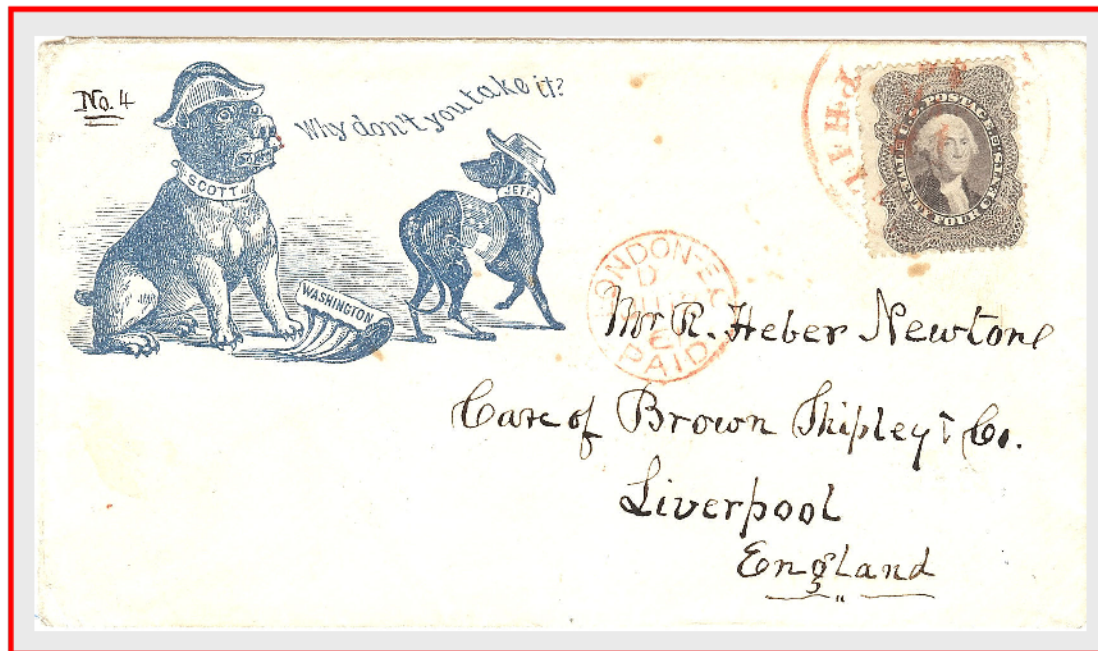 No. 4
Why don't you take it?
SCOTT
JEFF
WASHINGTON
U.S. POSTAGE
TWENTY FOUR CENTS
PHIL
LONDON-EC
PAID
Mr R. Heber Newton
Care of Brown Shipley & Co.
Liverpool
England